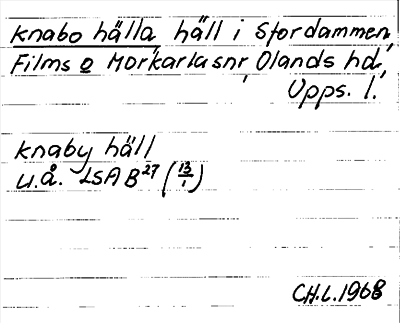 Knabo hälla, häll i Stordammen,
Films o Morkarlasnr, Olands hd,
Upps. l.
Knaby häll
u.å. LSA B27 (13/1)
CH.L. 1968